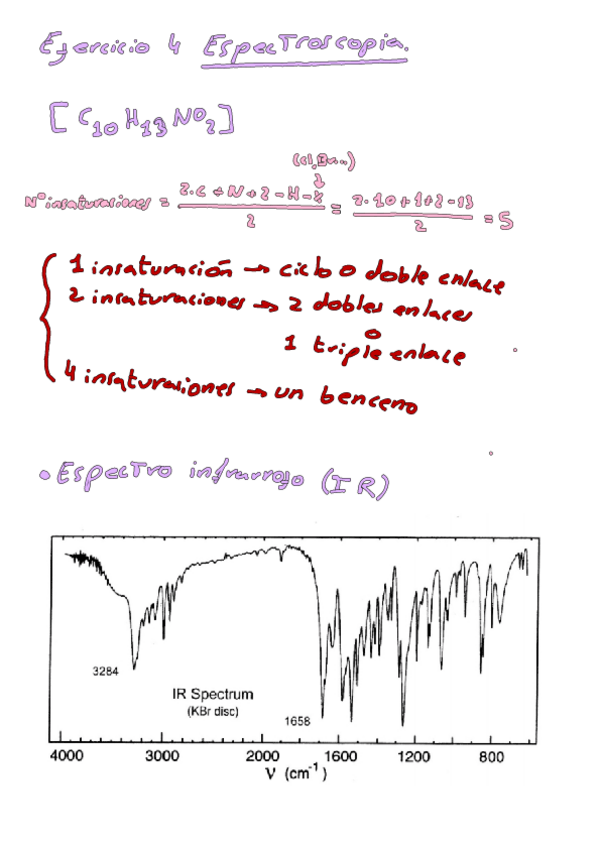 Ejercicio 4 Espectroscopia.
[C10H13NO2]
(Cl,Br..)
Nº insaturaciones = 2·C+N+2-H-X / 2 = 2·10+1+2-13 / 2 = 5
1 insaturación → ciclo o doble enlace
2 insaturaciones → 2 dobles enlaces
o
1 triple enlace
4 insaturaciones → un benceno
• Espectro infrarrojo (IR)
3284
IR Spectrum
(KBr disc)
1658
4000 3000 2000 1600 1200 800
ν (cm-1)